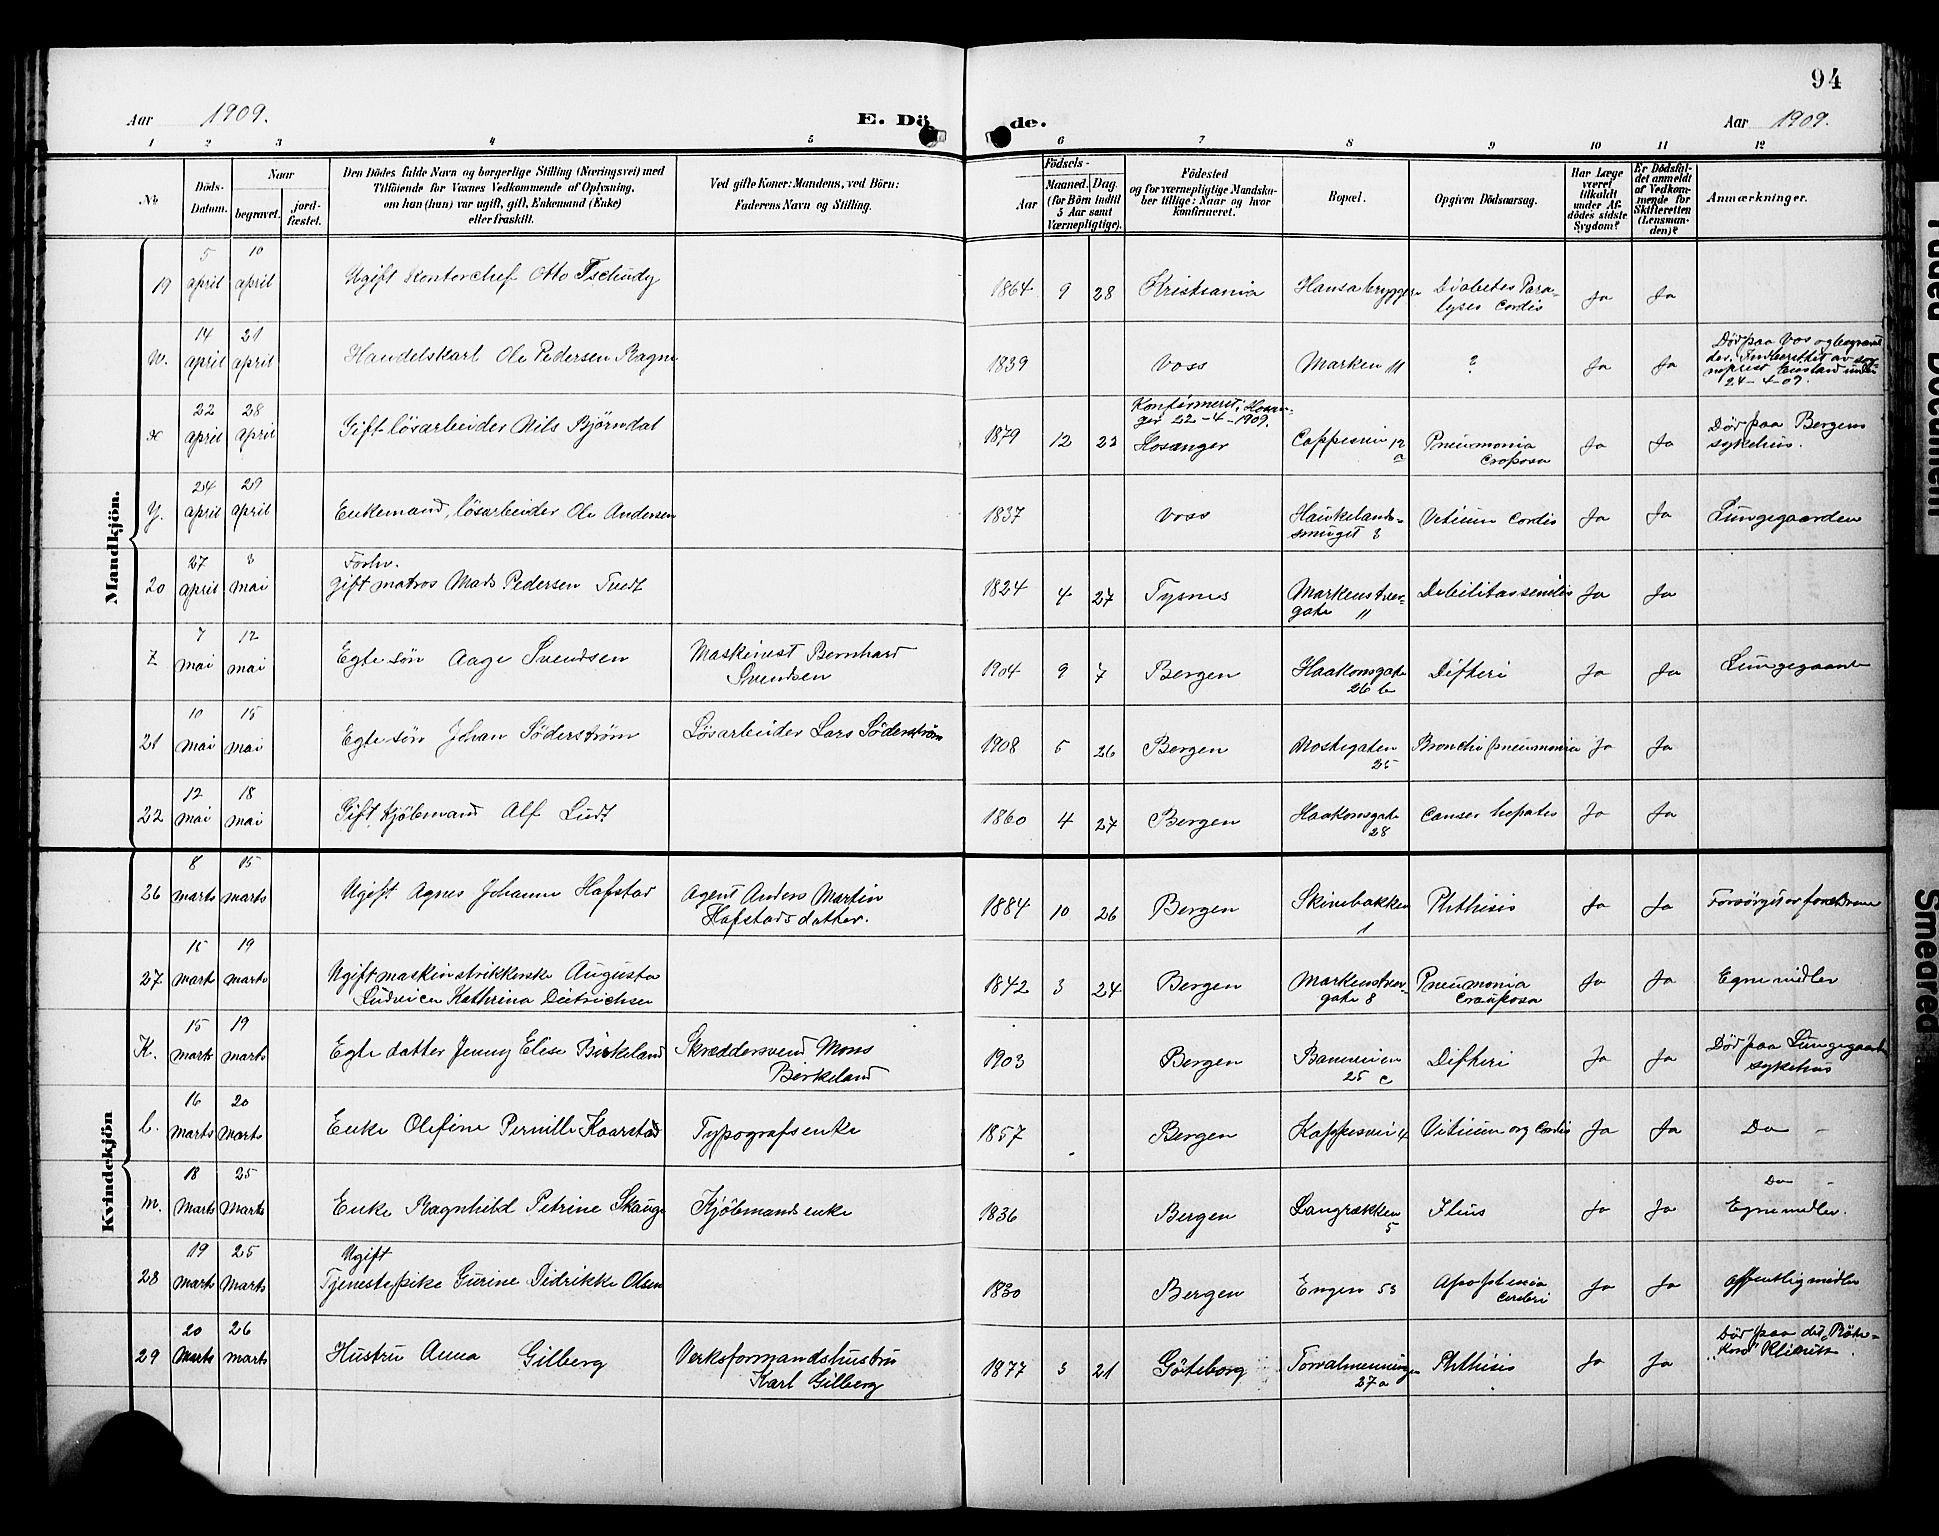 94
Aar 1909.
E. Dö de.
Aar 1909.
1 2 3 4 5 6 7 8 9 10 11 12
No
Döds-Datum.
Naar
begravet.
jordfæstet.
Den Dödes fulde Navn og borgerlige Stilling (Næringsvei) med
Tilföiende for Voxnes Vedkommende af Oplysning,
om han (hun) var ugift, gift, Enkemand (Enke)
eller fraskilt.
Ved gifte Koner: Mandens, ved Börn:
Faderens Navn og Stilling.
Födsels-
Aar
Maaned. Dag.
(for Börn indtil
5 Aar samt
Værnepligtige).
Födested
og for værnepligtige Mandska-
ber tillige: Naar og hvor
konfirmeret.
Bopæl.
Opgiven Dödsaarsag.
Har Læge
været
tilkaldt
under Af-
dödes sidste
Sygdom?
Er Dödsfal-
det anmeldt
af Vedkom-
mende for
Skifteretten
(Lensman-
den)?
Anmærkninger.
Mandkjön.
19 5 april 10 april Ugift Kontorchef Otto Tschudy 1864 9 28 Kristiania Hansa bryggeri Diabetes Para-
lyses Cordis Ja Ja
W. 14 april 21 april Handelskarl Ole Pedersen Ragne 1839 Voss Marken 11 ? Ja Ja Död paa Vos og begravet
der. Indberettet av sog-
neprest under
24-4-09.
X 22 april 28 april Gift lösarbeider Nils Björndal 1879 12 22 Konfirmeret i Hosan-
ger 22-4-1909.
Hosanger Cappesvei 12
a Pneumonia
Croposa Ja Ja Död paa Bergens
sykehus.
Y. 24 april 29 april Enkemand, lösarbeider Ole Andersen 1837 Voss Haukelands-
smuget 3 Vitium Cordis Ja Ja Lungegaarden
20 27 april 3 mai Forhv.
gift matros Mads Pedersen Tvedt 1824 4 27 Tysnes Markenstver-
gate 11 Debilitas senilis Ja Ja
Z 7 mai 12 mai Egte sön Aage Svendsen Maskinist Bernhard
Svendsen 1904 9 7 Bergen Haakonsgate
26 b Difteri Ja Ja Lungegaard
21 10 mai 15 mai Egte sön Johan Söderström Lösarbeider Lars Söderström 1908 5 26 Bergen Nostegaten
25 Bronchi pneumonia Ja Ja
22 12 mai 18 mai Gift Kjöbmand Alf Ludt 1860 4 27 Bergen Haakonsgate
28 Canser hepatis Ja Ja
Kvindekjön
26 8 marts 15 marts Ugift Agnes Johanne Hafstad Agent Anders Martin
Hafstads datter. 1884 10 26 Bergen Skinebakken
1 Phthisis Ja Ja Forsörget av forældrene
27 15 mart 19 marts Ugift maskinstrikkerske Augusta
Kathrina Dietrichsen 1842 3 24 Bergen Markenstver-
gate 8 Pneumonia
Crouposa Ja Ja Egne midler
K. 15 marts 19 marts Egte datter Jenny Elise Birkeland Skræddersvend Mons
Birkeland 1903 Bergen 25 c Difteri Ja Ja Död paa Lungegaard
sykehus
L. 16 marts 20 marts Enke Olefine Pernille Kaarstad Typografsenke 1857 Bergen Kappesvei 4 Vitium org Cordis Ja Ja Do -
M. 18 Marts 25 Marts Enke Ragnhild Petrine Skauge Kjöbmandsenke 1836 Bergen Langrækken
5 Ilius Ja Ja Do -
Egne midler.
28 19 marts 25 Marts Ugift
Tjenestepike Gurine Didrikke Olsen 1830 Bergen Engen 53 Apoplexia
Cerebri Ja Ja offentlig midler
29 20 Marts 26 marts Hustru Anna Gilberg Verksformandshustru
Karl Gilberg 1877 3 21 Göteborg Torvalmenningen
27 a Phthisis Ja Ja Död paa det „Röte
Kors" Klinikk.
Faded Document
Smeared